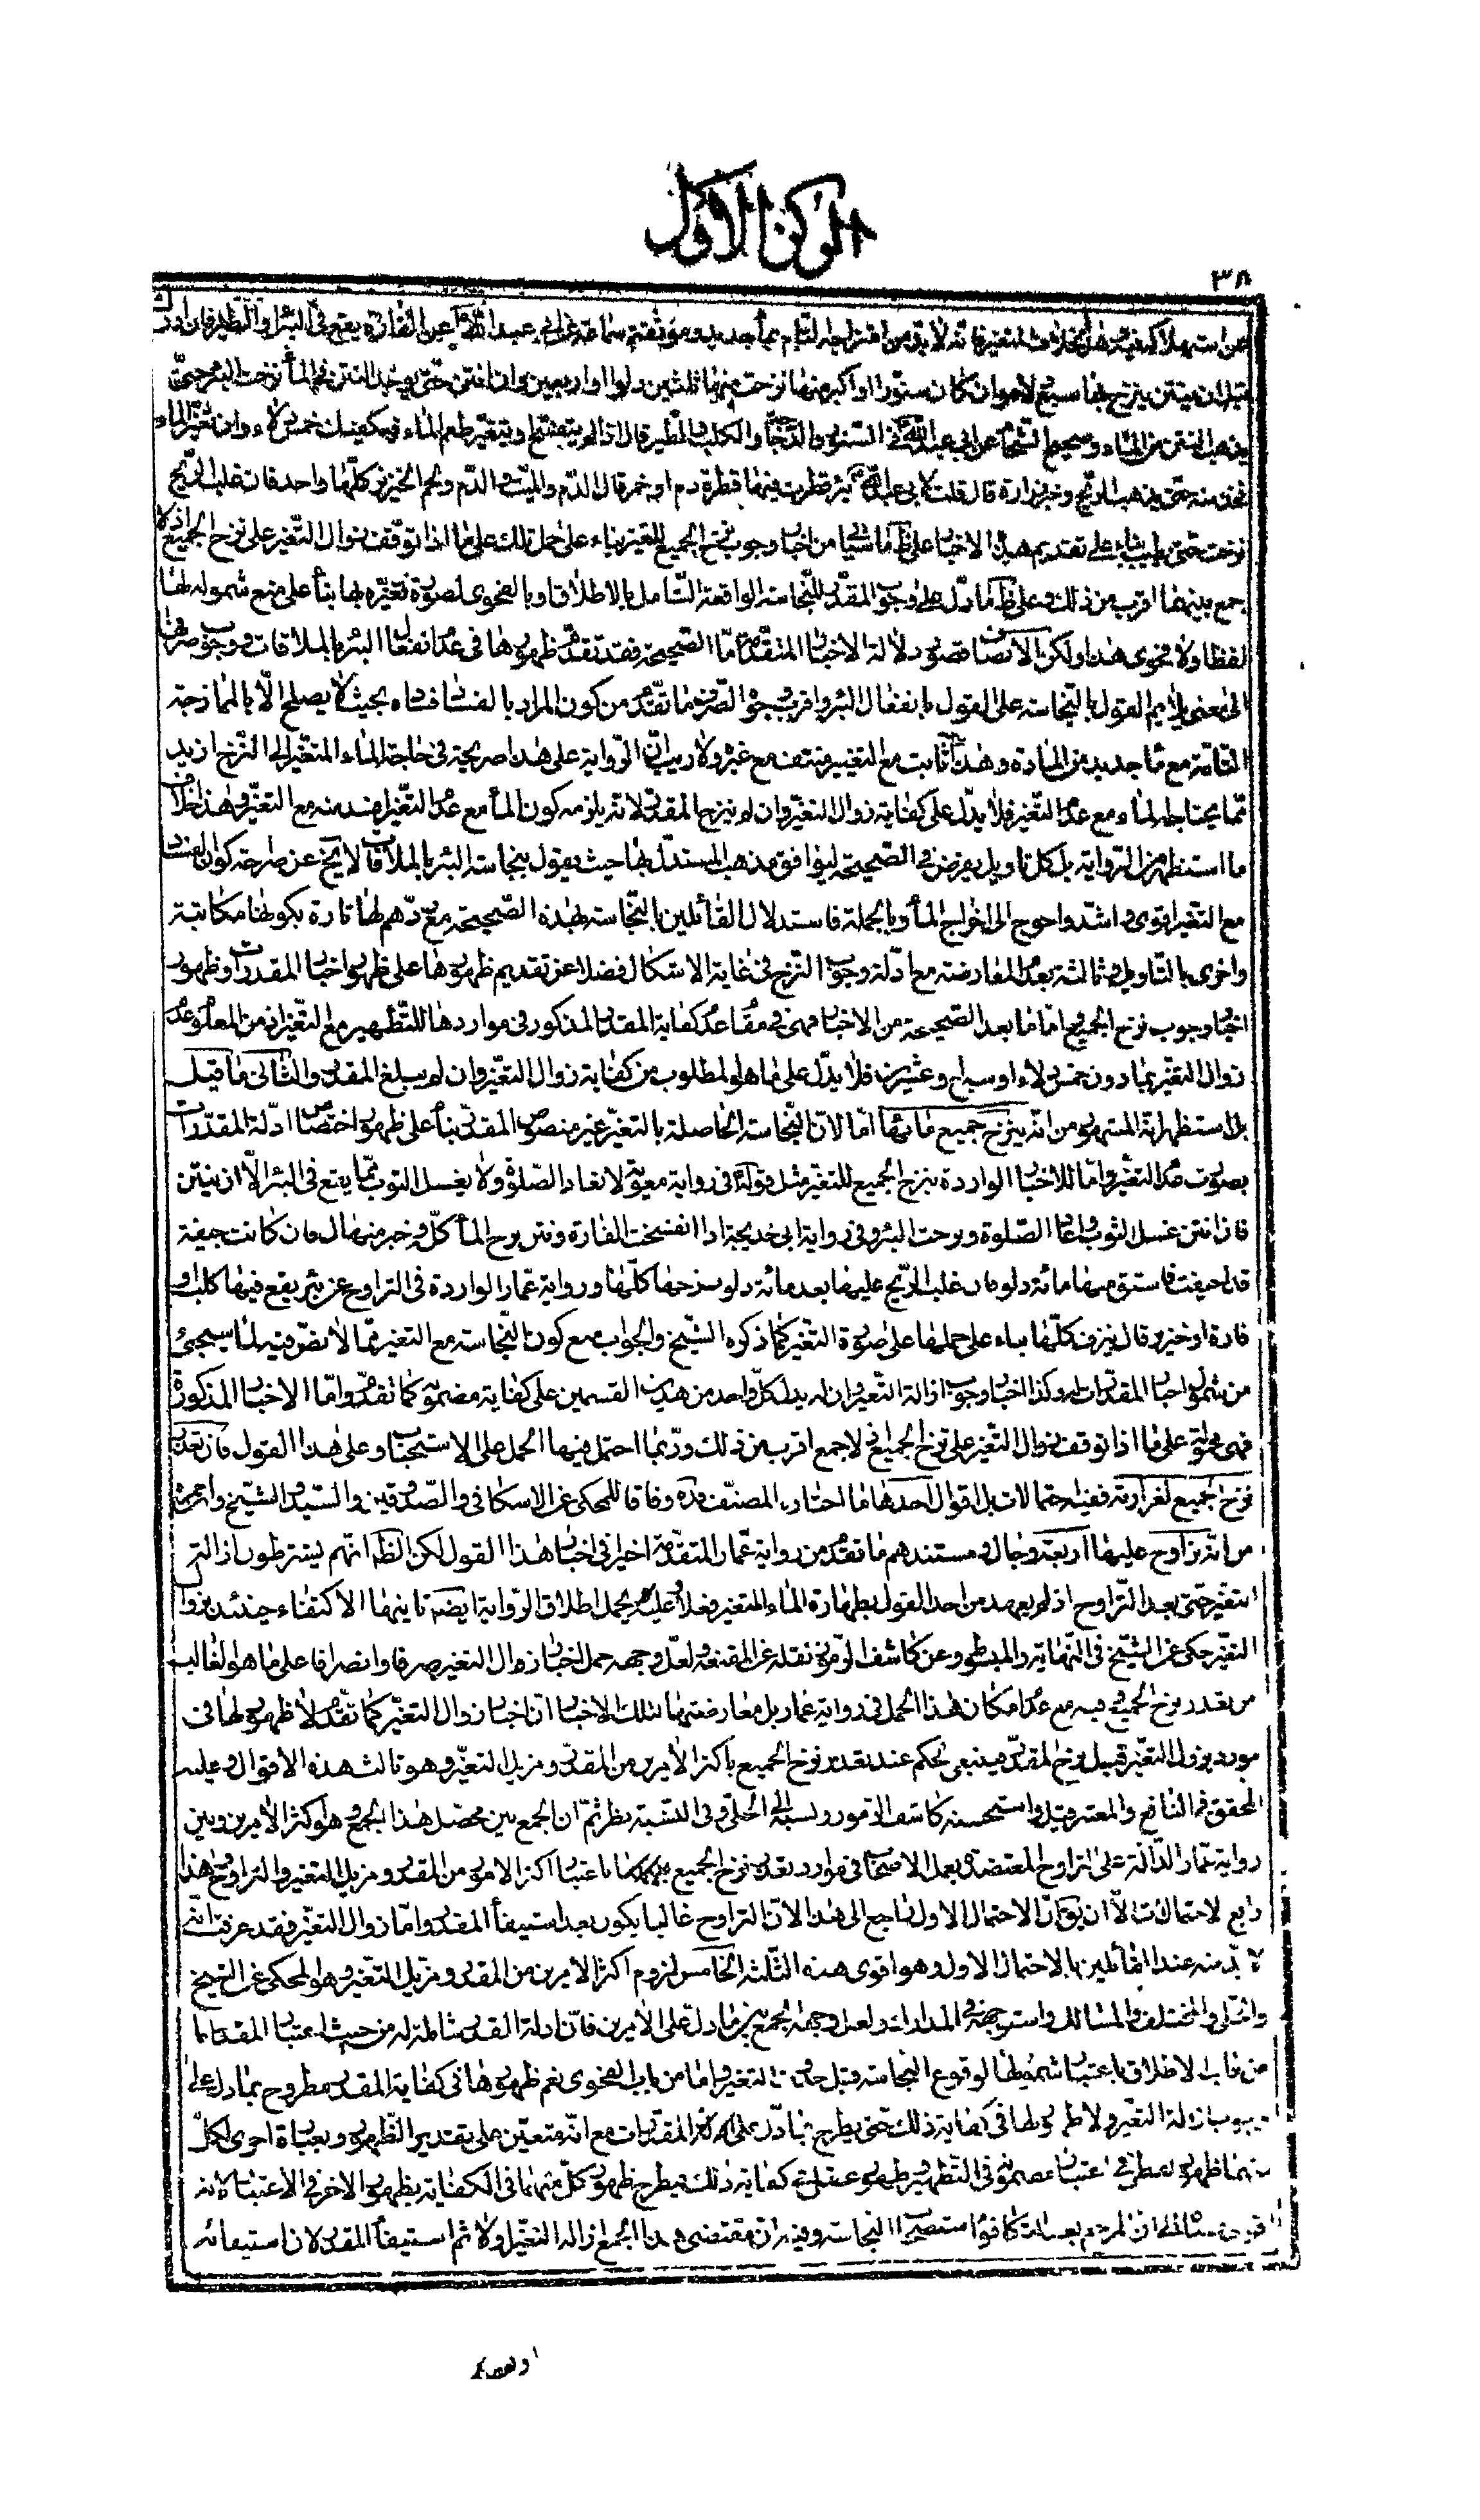 الركن الاول
٣٨
فيه لا بد من امتزاجه التام بماء جديد وموثقة سماعة عن ابي عبد الله ع عن الفارة يقع في البئر او الطير فان ادركته
قبل ان ينتن ينزح سبع دلاء وان كان سنورا او اكبر منها نزحت منها ثلثين دلوا او اربعين وان انتن حتى يوجد النتن في الماء نزحت البئر حتى
يذهب النتن من الماء وصحيح الشحام عن ابي عبد الله ع في السنور والدجاجة والكلب والطير قال اذا لم يتفسخ او يتغير طعم الماء فيكفيك خمس دلاء وان تغير الماء
فخذ منه حتى يذهب الريح وخبر زرارة قال قلت لابي عبد الله ع بئر قطرت فيها قطرة دم او خمر قال الدم والميت والدم ولحم الخنزير كلها واحد فان غلب الريح
نزحت حتى يطيب بناء على تقديم هذه الاخبار على ما سيأتي من اخبار وجوب نزح الجميع للتغير بناء على حمل ذلك على ما اذا توقف زوال التغير على نزح الجميع اذ لا
جمع بينهما اقرب من ذلك وعلى ما دل على وجوب المقدر للنجاسة الواقعة الشامل بالاطلاق او بالفحوى لصورة تغيره بها بناء على منع شموله لها
لفظا ولا فحوى هذا ولكن الانصاف قصور دلالة الاخبار المتقدمة اما الصحيحة فقد تقدم ظهورها في عدم انفعال البئر بالملاقات ووجوب صرفها
الى معنى يلايم القول بالنجاسة على القول بانفعال البئر واقرب وجوه الصرف ما تقدم من كون المراد بالفساد فسادا بحيث لا يصلح الا بالممازجة
التامة مع ماء جديد من المادة وهذا ثابت مع التغيير منتف مع غيره ولا ريب ان الرواية على هذا صريحة في حاجة الماء المتغير الى النزح ازيد
مما يحتاج الماء مع عدم التغير فلا يدل على كفاية زوال التغير وان لم ينزح المقدر لانه يلزمه كون الماء مع عدم التغير افسد منه مع التغير وهذا خلاف
ما استظهر من الرواية بل كل تاويل يفرض في الصحيحة ليوافق مذهب المستدل بها حيث يقول بنجاسة البئر بالملاقات لا يخ عن صراحة كون الفساد
مع التغير اقوى واشد واحوج الى اخراج الماء وبالجملة فاستدلال القائلين بالنجاسة بهذه الصحيحة مع ردهم لها تارة بكونها مكاتبة
واخرى بالتاويل وثالثة بعدم المعارضة مع ادلة وجوب النزح في غاية الاشكال فضلا عن تقديم ظهورها على ظهور اخبار المقدرات وظهور
اخبار وجوب نزح الجميع اما ما بعد الصحيحة من الاخبار فهي في مقام عدم كفاية المقدر المذكور في مواردها للتطهير مع التغير اذ من المعلوم عدم
زوال التغير بما دون خمس دلاء او سبع وعشرين فلا يدل على ما هو المطلوب من كفاية زوال التغير وان لم يبلغ المقدر والثاني ما قيل
بل استظهر انه المشهور من انه ينزح جميع مائها اما لان النجاسة الحاصلة بالتغير غير منصوص المقدر بناء على ظهور اختصاص ادلة المقدرات
بصورت عدم التغير واما للاخبار الواردة بنزح الجميع للتغير مثل قوله ع في رواية معوية لا تعاد الصلوة ولا يغسل الثوب مما يقع في البئر الا ان ينتن
فان انتن غسل الثوب واعاد الصلوة ونزحت البئر وفي رواية ابي خديجة اذا انفسخت الفارة ونتن نزح الماء كله وخبر منهال فان كانت جيفة
قد اجيفت فاستق منها مائة دلو فان غلب الريح عليها بعد مائة دلو فانزحها كلها ورواية عمار الواردة في التراوح عن بئر يقع فيها كلب او
فارة او خنزير قال ينزف كلها بناء على حملها على صورة التغير كما ذكره الشيخ والجواب منع كون النجاسة مع التغير مما لا نص فيه لما سيجئ
من شمول اخبار المقدرات له وكذا اخبار وجوب ازالة التغير وان لم يدل كل واحد من هذين القسمين على كفاية مضمونه كما تقدم واما الاخبار المذكورة
فهي محمولة على ما اذا توقف زوال التغير على نزح الجميع اذ لا جمع اقرب من ذلك وربما احتمل فيها الحمل على الاستحباب وعلى هذا القول فان تعذر
نزح الجميع لغزارته ففيه احتمالات بل اقوال احدها ما اختاره المصنف قده وفاقا للمحكي عن الاسكافي والصدوقين والسيد والشيخ
من انه تراوح عليها اربعة رجال ومستندهم ما تقدم من رواية عمار المتقدمة اخيرا في اخبار هذا القول لكن الظ انهم يشترطون
التغير حتى بعد التراوح اذ لم يعهد من احد القول بطهارة الماء المتغير فعلا وعليه يحمل اطلاق الرواية ايضا ثانيها الاكتفاء حينئذ بزوال
التغير حكي عن الشيخ في النهاية والمبسوط وعن كاشف الرموز نقله عن المقنعة ولعل وجهه حمل اخبار زوال التغير صرفا وانصرافا على ما هو الغالب
من تعذر نزح الجميع فيه مع عدم امكان هذا الحمل في رواية عمار بل معارضتها لتلك الاخبار ان اخبار زوال التغير كما تقدم لا ظهور لها في
مورد يزول التغير قبل نزح المقدر فينبغي الحكم عند تعذر نزح الجميع باكثر الامرين من المقدر ومزيل التغير وهو ثالث هذه الاقوال وعليه
المحقق في النافع والمعتبر قيل واستحسنه كاشف الرموز ونسبه الى الحلي وفي النسبة نظر ثم ان الجمع بين محصل هذا الجمع وهو اكثر الامرين وبين
رواية عمار الدالة على التراوح المعتضدة بعمل الاصحاب في موارد تعذر نزح الجميع باعتبار اكثر الامور من المقدر ومزيل التغير والتراوح هذا
رابع الاحتمالات الا ان يق ان الاحتمال الاول راجع الى هذا لان التراوح غالبا يكون بعد استيفاء المقدر واما زوال التغير فقد عرفت انه
لا بد منه عند القائلين بالاحتمال الاول وهو اقوى هذه الثلثة الخامس لزوم اكثر الامرين من المقدر ومزيل التغير وهو المحكي عن
والمختلف والمسالك واستوجهه في المدارك ولعل وجهه الجمع بين ما دل على الامرين فان ادلة المقدر شاملة له من حيث اعتبار المقدر اما
من باب الاطلاق باعتبار شمولها لوقوع النجاسة قبل حدوث التغير واما من باب الفحوى نعم ظهورها في كفاية المقدر مطروح بما دل على
وجوب ازالة التغير ولا ظهور لها في كفاية ذلك حتى يطرح بما دل على المقدرات مع انه متعين على تقدير الظهور وبعبارة اخرى لكل
منهما ظهور في اعتبار مضمونه في التطهير وظهور في كفايته فيطرح ظهور كل منهما في الكفاية بظهور الاخر في الاعتبار لانه
استصحاب النجاسة وفيه ان مقتضى هذا الجمع ازالة التغير اولا ثم استيفاء المقدر لان استيفائه